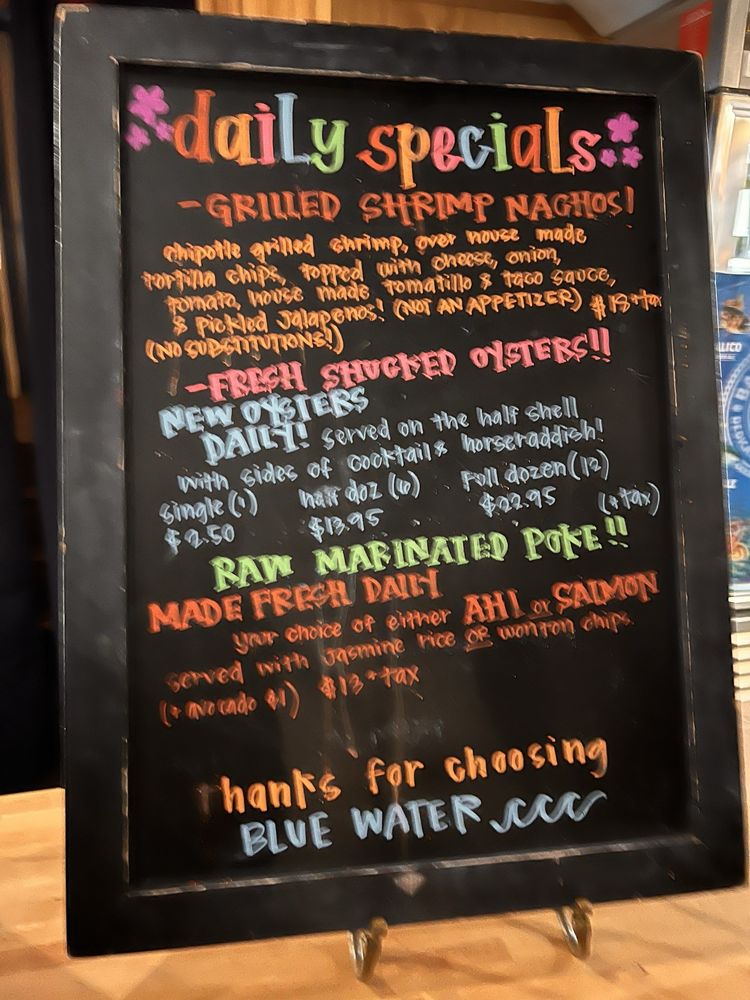 daily specials
-GRILLED SHRIMP NACHOS!
chipotle grilled shrimp, over house made
tortilla chips, topped with cheese, onion,
tomato, house made tomatillo & taco sauce,
& pickled jalapenos! (NOT AN APPETIZER) $18+tax
(NO SUBSTITUTIONS!)
-FRESH SHUCKED OYSTERS!!
NEW OYSTERS
DAILY! served on the half shell
with sides of cocktail & horseraddish!
single (1) half doz (6) Full dozen (12)
$2.50 $13.95 $22.95 (+tax)
RAW MARINATED POKE!!
MADE FRESH DAILY
your choice of either AHI or SALMON
served with Jasmine rice OR wonton chips.
(+ avocado $1) $13+tax
Thanks for choosing
BLUE WATER